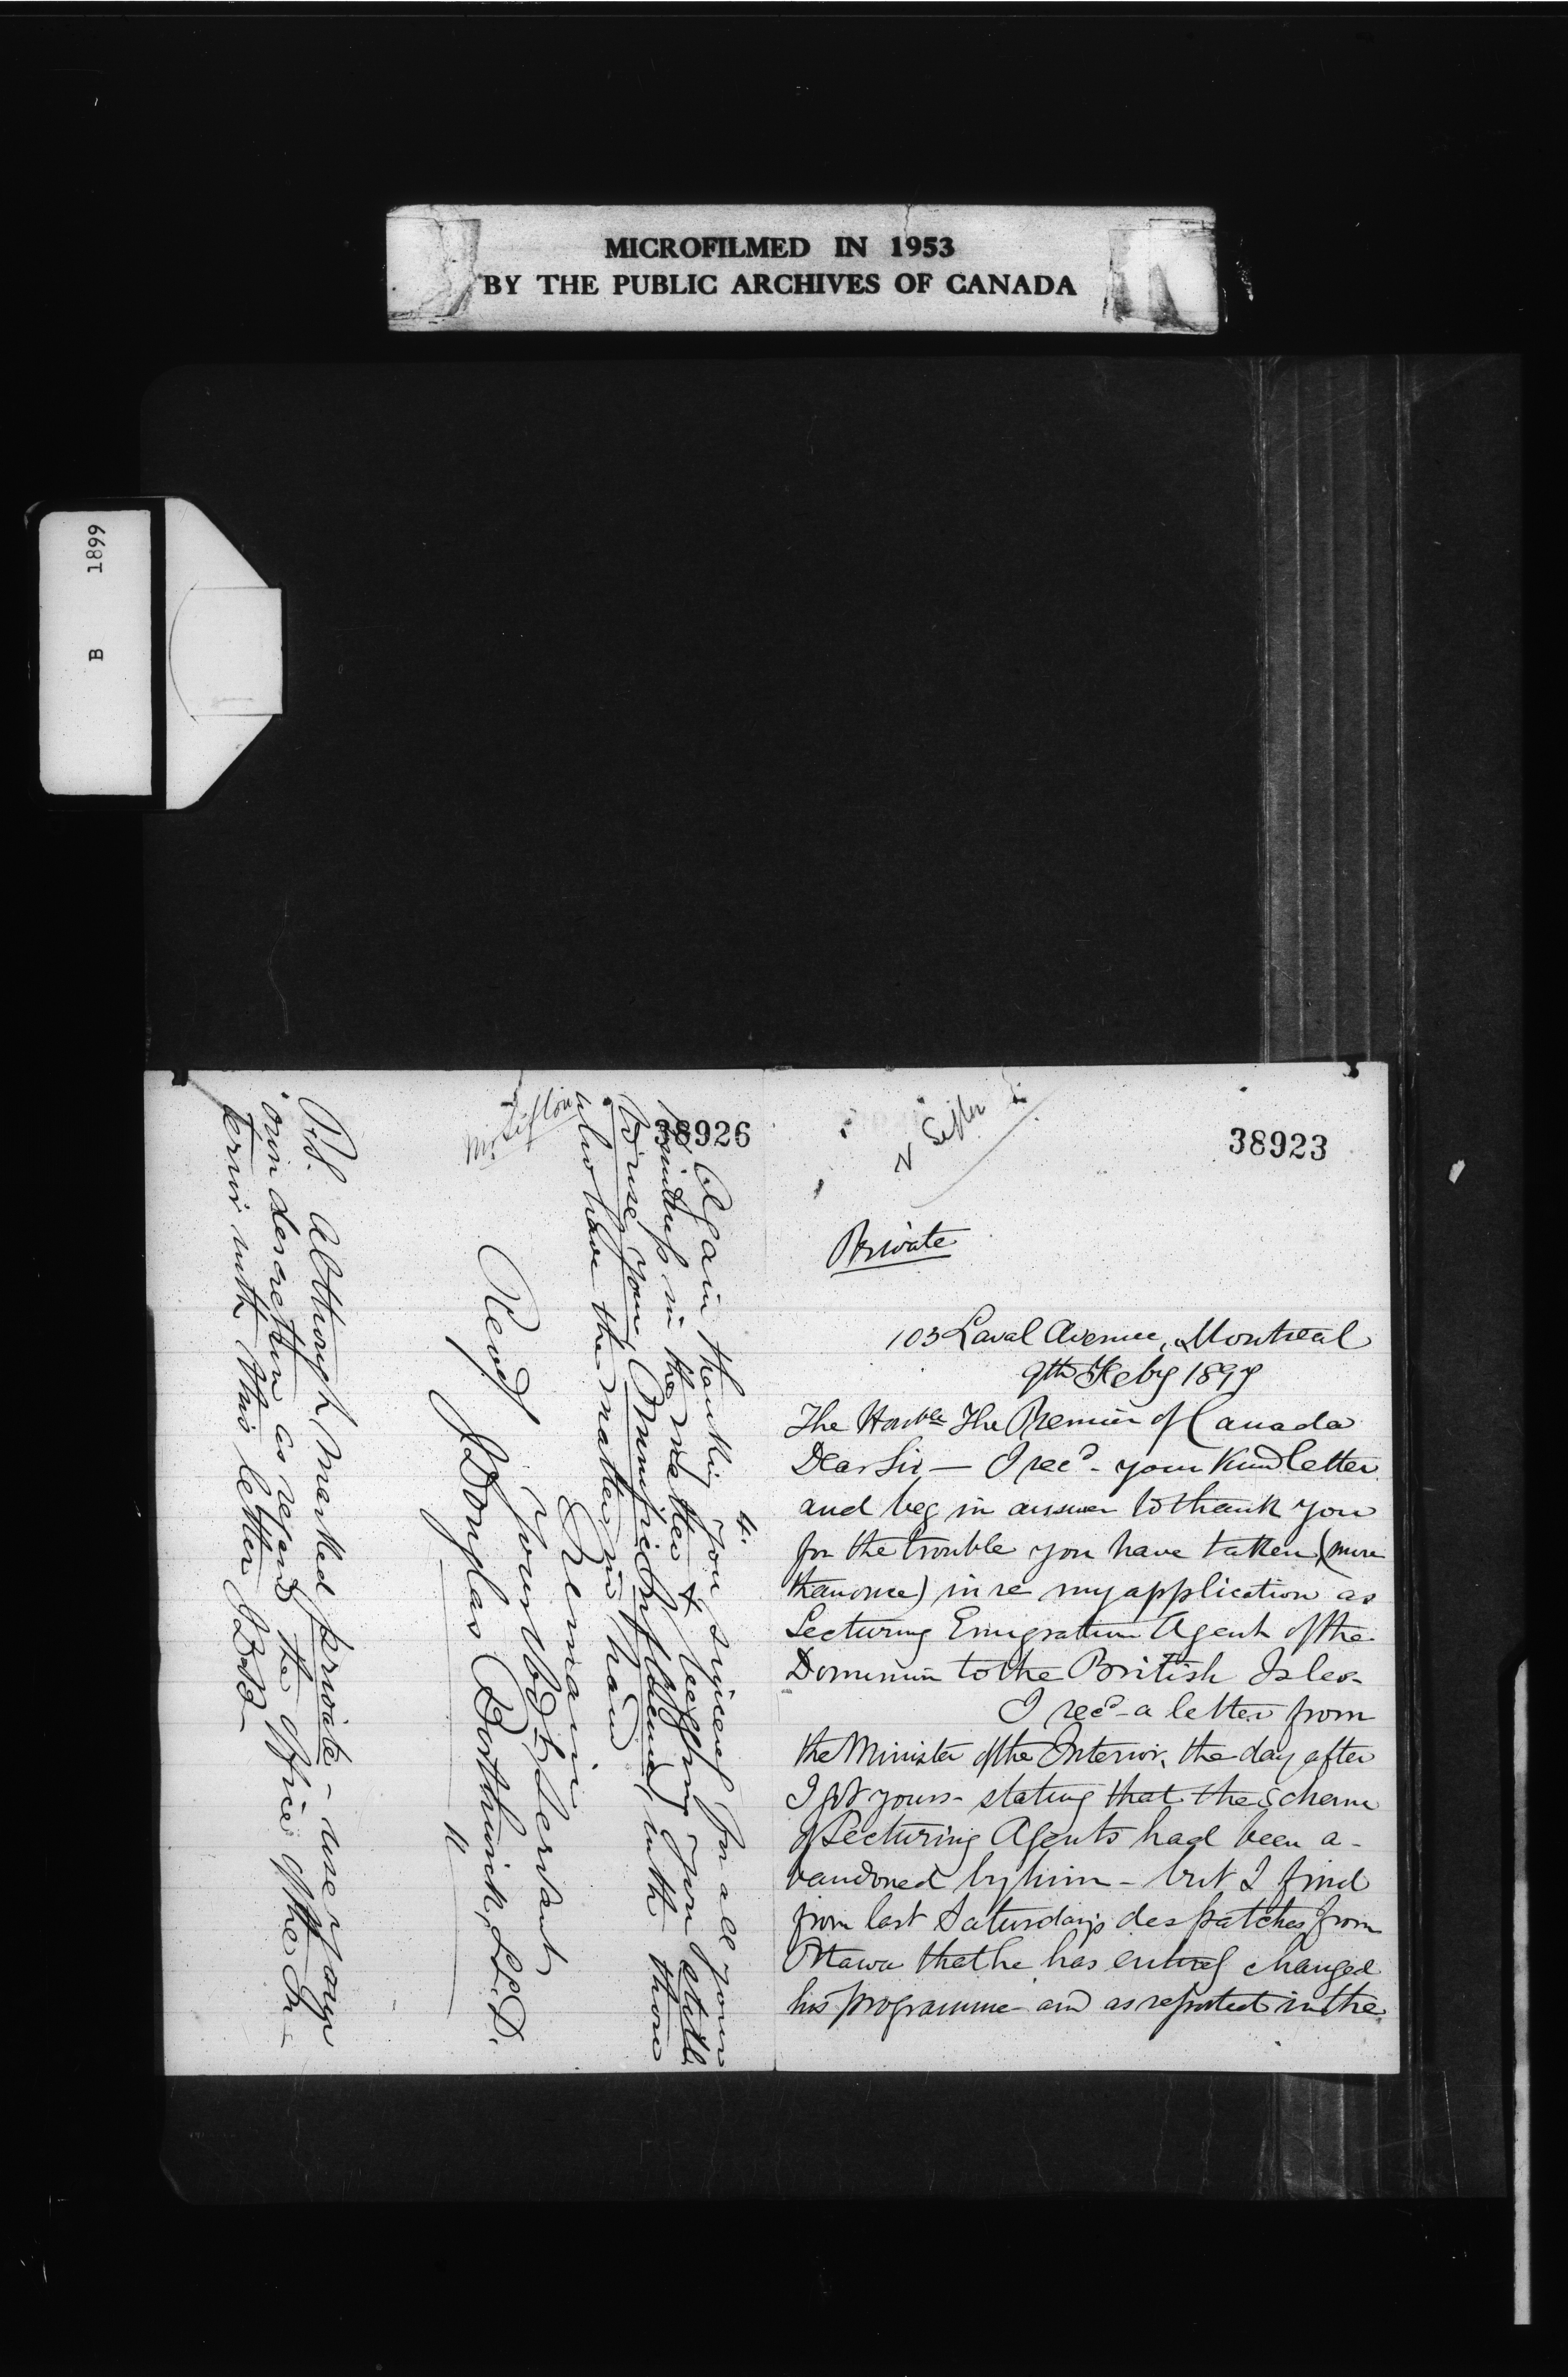 MICROFILMED IN 1953
BY THE PUBLIC ARCHIVES OF CANADA
B 1899
38923
Private
103 Laval Avenue, Montreal
9th Feby 1897
The Honble The Premier of Canada
Dear Sir — I recd - your kind letter
and beg in answer to thank you
for the trouble you have taken (more
than once) in re my application as
Lecturing Emigration Agent of the
Dominion to the British Isles -
I recd - a letter from
the Minister of the Interior, the day after
I got yours - stating that the scheme
of Lecturing Agents had been a-
bandoned by him - but I find
from last Saturday's despatches from
Ottawa that he has entirely changed
his programme - and as reported in the
38926
Mr. Sifton
4.
Again thanking you sincerely for all your
kindness in the matter & begging you
to use your influence with those
who have the matter in hand
I remain
Your obt. servant
Revd J Douglas Borthwick, LL.D.
P.S. Although marked private - use your
own descretion as regard the office of the In-
terior with this letter JDB